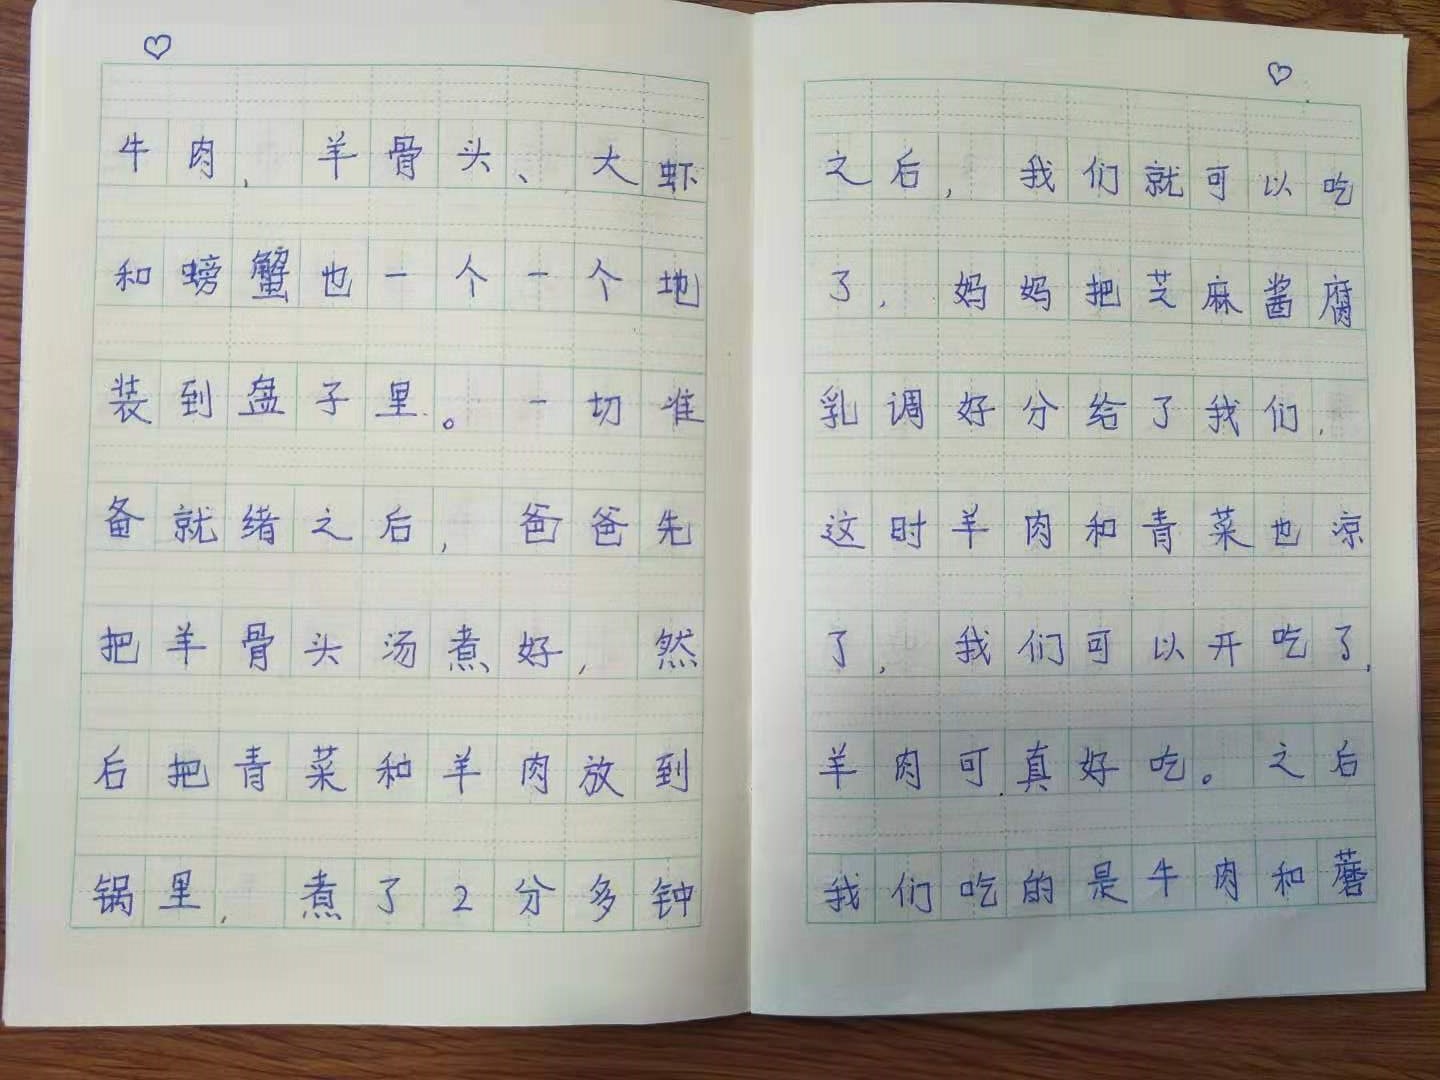 牛肉，羊骨头、大虾
和螃蟹也一个一个地
装到盘子里。一切准
备就绪之后，爸爸先
把羊骨头汤煮好，然
后把青菜和羊肉放到
锅里，煮了2分多钟
之后，我们就可以吃
了，妈妈把芝麻酱腐
乳调好分给了我们，
这时羊肉和青菜也凉
了，我们可以开吃了，
羊肉可真好吃。之后
我们吃的是牛肉和蘑